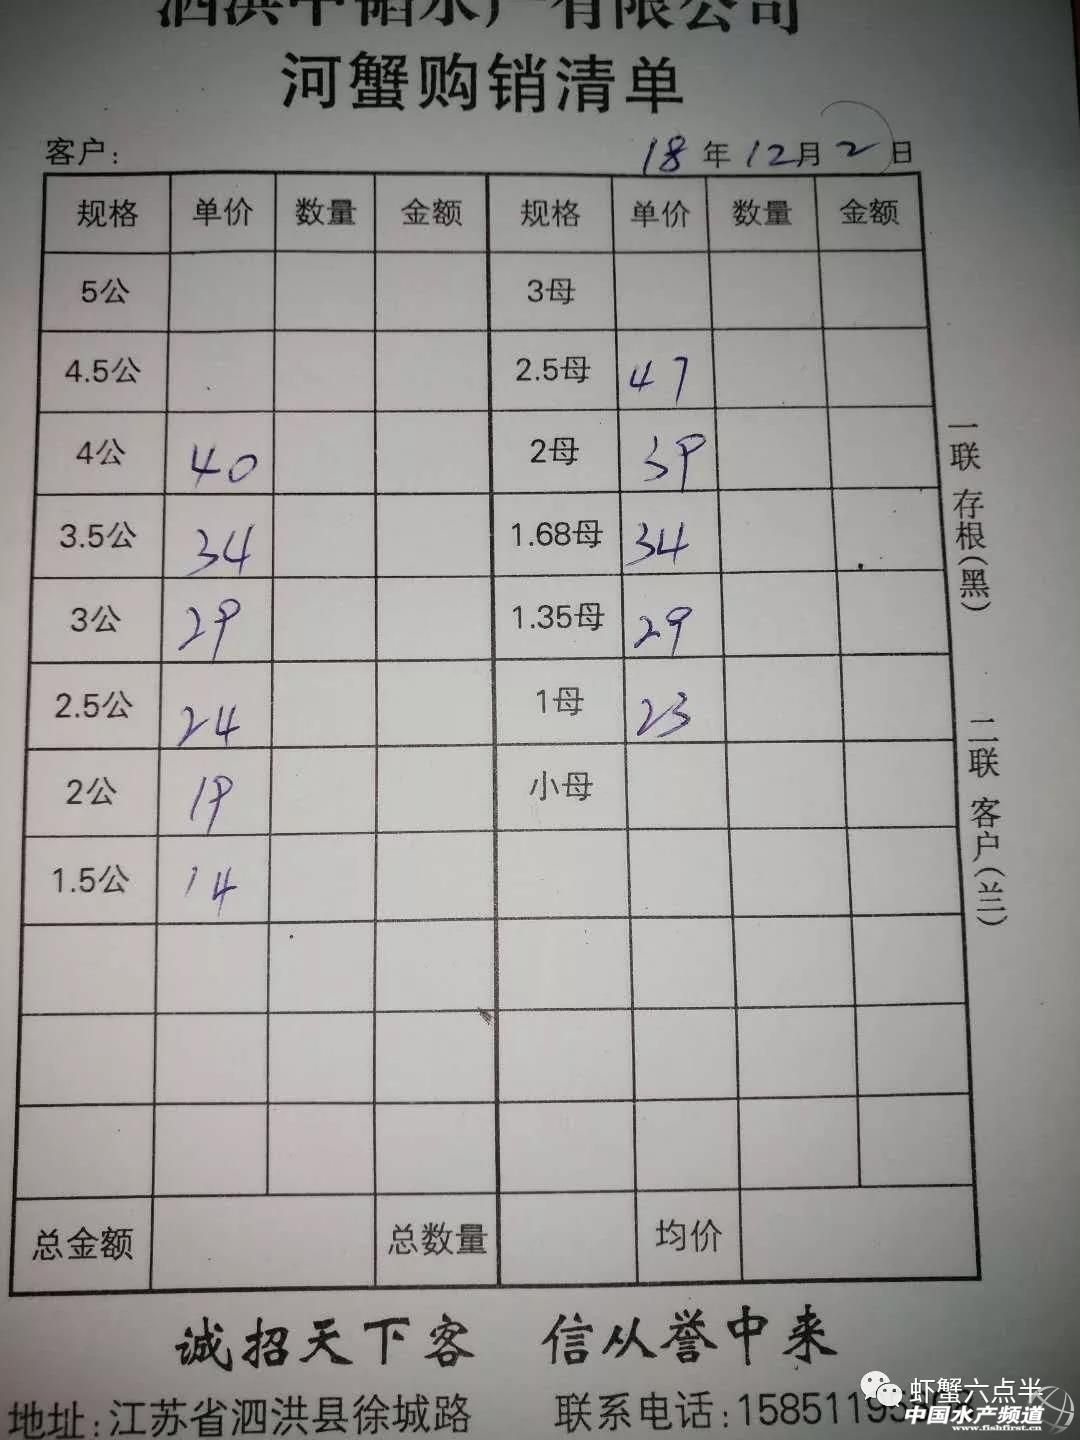 泗洪中韬水产有限公司
河蟹购销清单
客户: 18 年 12 月 2 日
规格 单价 数量 金额 规格 单价 数量 金额
5公 3母
4.5公 2.5母 47
4公 40 2母 39
3.5公 34 1.68母 34
3公 29 1.35母 29
2.5公 24 1母 23
2公 19 小母
1.5公 14
总金额 总数量 均价
一联 存根(黑)
二联 客户(兰)
诚招天下客 信从誉中来
地址:江苏省泗洪县徐城路 联系电话:158511
虾蟹六点半
中国水产频道
www.fishfirst.cn